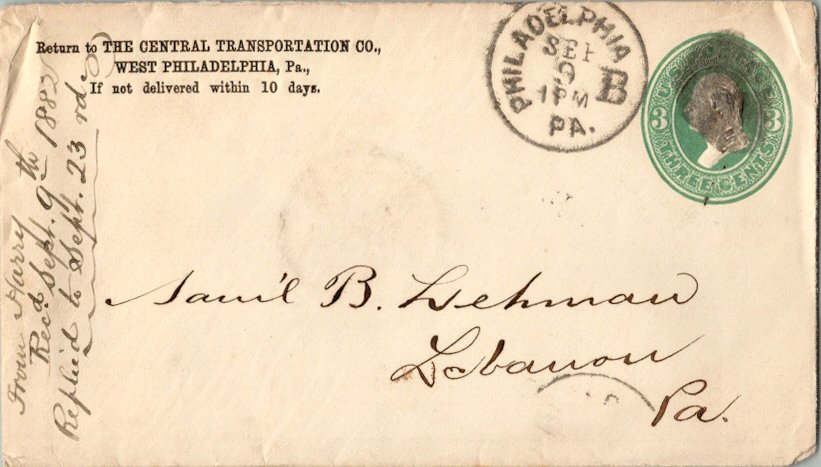 Return to THE CENTRAL TRANSPORTATION CO.,
WEST PHILADELPHIA, Pa.,
If not delivered within 10 days.
PHILADELPHIA
SEP
9
1 PM
B
PA.
U.S. POSTAGE
3 3
THREE CENTS
From Harry
Recd Sept. 9th 188
Replied to Sept. 23rd
Sam'l B. Lehman
Lebanon
Pa.